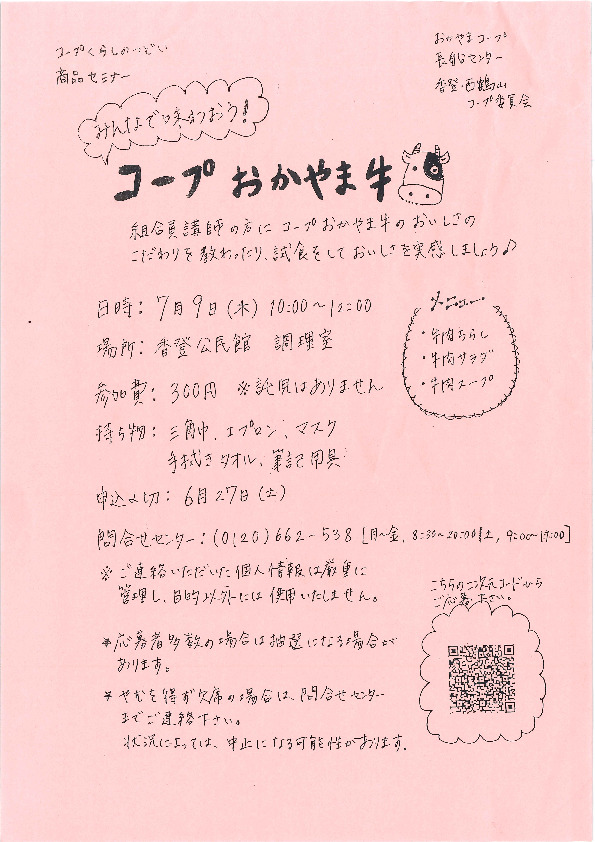 コープくらしのつどい
商品セミナー
おかやまコープ
長船センター
香登・西鶴山
コープ委員会
みんなで味わおう!
コープ おかやま牛
組合員講師の方に コープおかやま牛のおいしさの
こだわりを教わったり、試食をしておいしさを実感しましょう♪
日時: 7月9日(木) 10:00〜12:00
場所: 香登公民館 調理室
参加費: 300円 ※託児はありません
持ち物: 三角巾、エプロン、マスク
手拭きタオル、筆記用具
申込〆切: 6月27日(土)
メニュー
・牛肉ちらし
・牛肉サラダ
・牛肉スープ
問合せセンター: (0120)662-538 [月〜金, 8:30〜20:00 土, 9:00〜19:00]
※ ご連絡いただいた個人情報は厳重に
管理し、目的以外には使用いたしません。
※応募者多数の場合は抽選になる場合が
あります。
※やむを得ず欠席の場合は、問合せセンター
までご連絡下さい。
状況によっては、中止になる可能性があります.
こちらの二次元コードから
ご応募下さい。